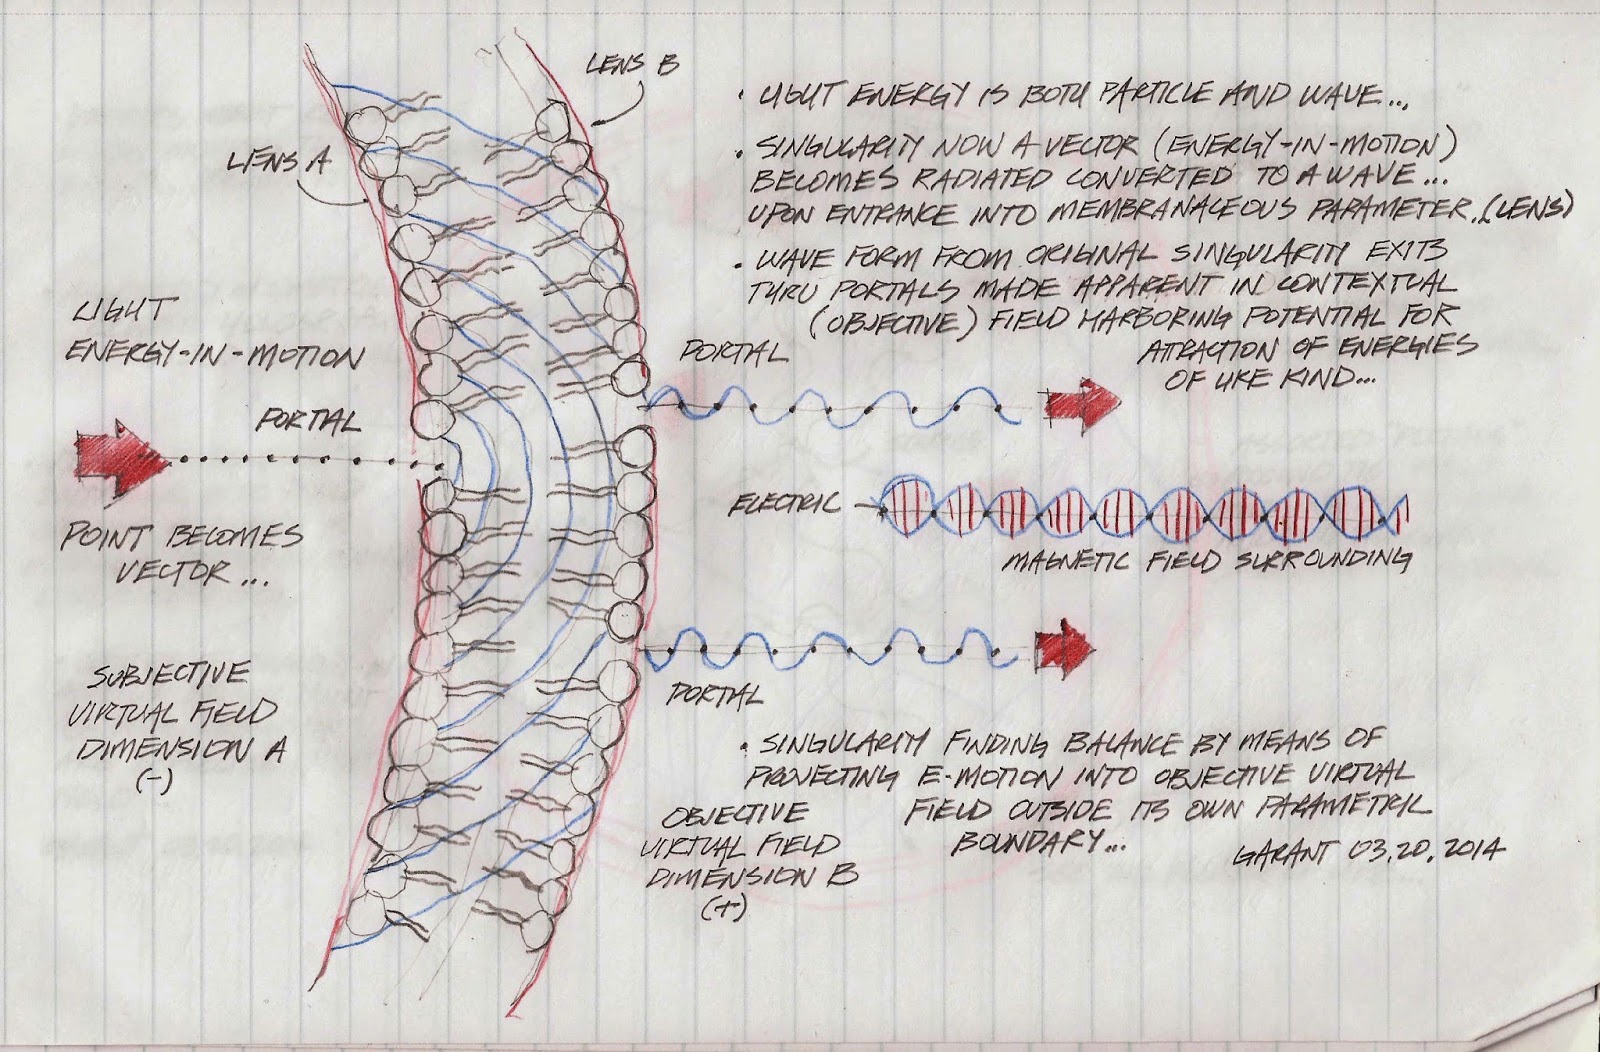 LENS B
LENS A
LIGHT
ENERGY-IN-MOTION
PORTAL
POINT BECOMES
VECTOR...
SUBJECTIVE
VIRTUAL FIELD
DIMENSION A
(-)
• LIGHT ENERGY IS BOTH PARTICLE AND WAVE...
• SINGULARITY NOW A VECTOR (ENERGY-IN-MOTION)
BECOMES RADIATED CONVERTED TO A WAVE...
UPON ENTRANCE INTO MEMBRANACEOUS PARAMETER..(LENS)
• WAVE FORM FROM ORIGINAL SINGULARITY EXITS
THRU PORTALS MADE APPARENT IN CONTEXTUAL
(OBJECTIVE) FIELD HARBORING POTENTIAL FOR
ATTRACTION OF ENERGIES
OF LIKE KIND...
PORTAL
ELECTRIC
MAGNETIC FIELD SURROUNDING
PORTAL
• SINGULARITY FINDING BALANCE BY MEANS OF
PROJECTING E-MOTION INTO OBJECTIVE VIRTUAL
FIELD OUTSIDE ITS OWN PARAMETRIC
BOUNDARY...
OBJECTIVE
VIRTUAL FIELD
DIMENSION B
(+)
GARANT 03.20.2014